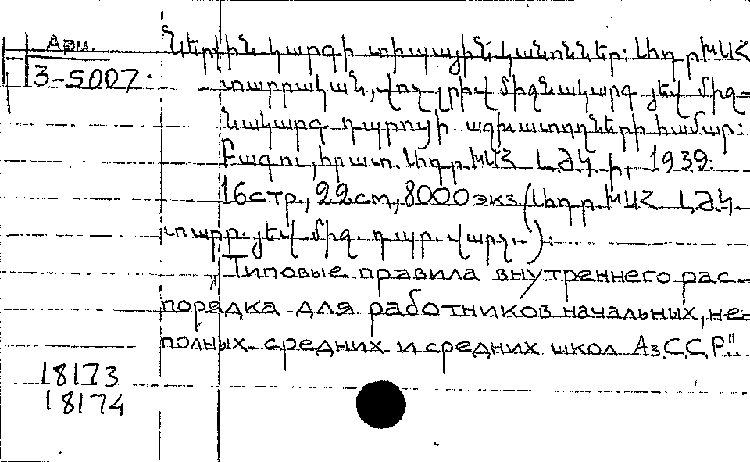 Арм.
3-5007.
Ներքին կարգի տիպային կանոններ. Ադր ԽՍՀ
տարրական, վոչ լրիվ միջնակարգ յեվ միջ-
նակարգ դպրոցի աշխատողների համար:
Բագու, հրատ. Ադր. ԽՍՀ ԼԺԿ ի, 1939.
16 стр., 22 см, 8000 экз (Ադր. ԽՍՀ ԼԺԿ.
տարր. յեվ միջ դպր վարչ.).
"Типовые правила внутреннего рас-
порядка для работников начальных, не-
полных средних и средних школ АзССР"
18173
18174